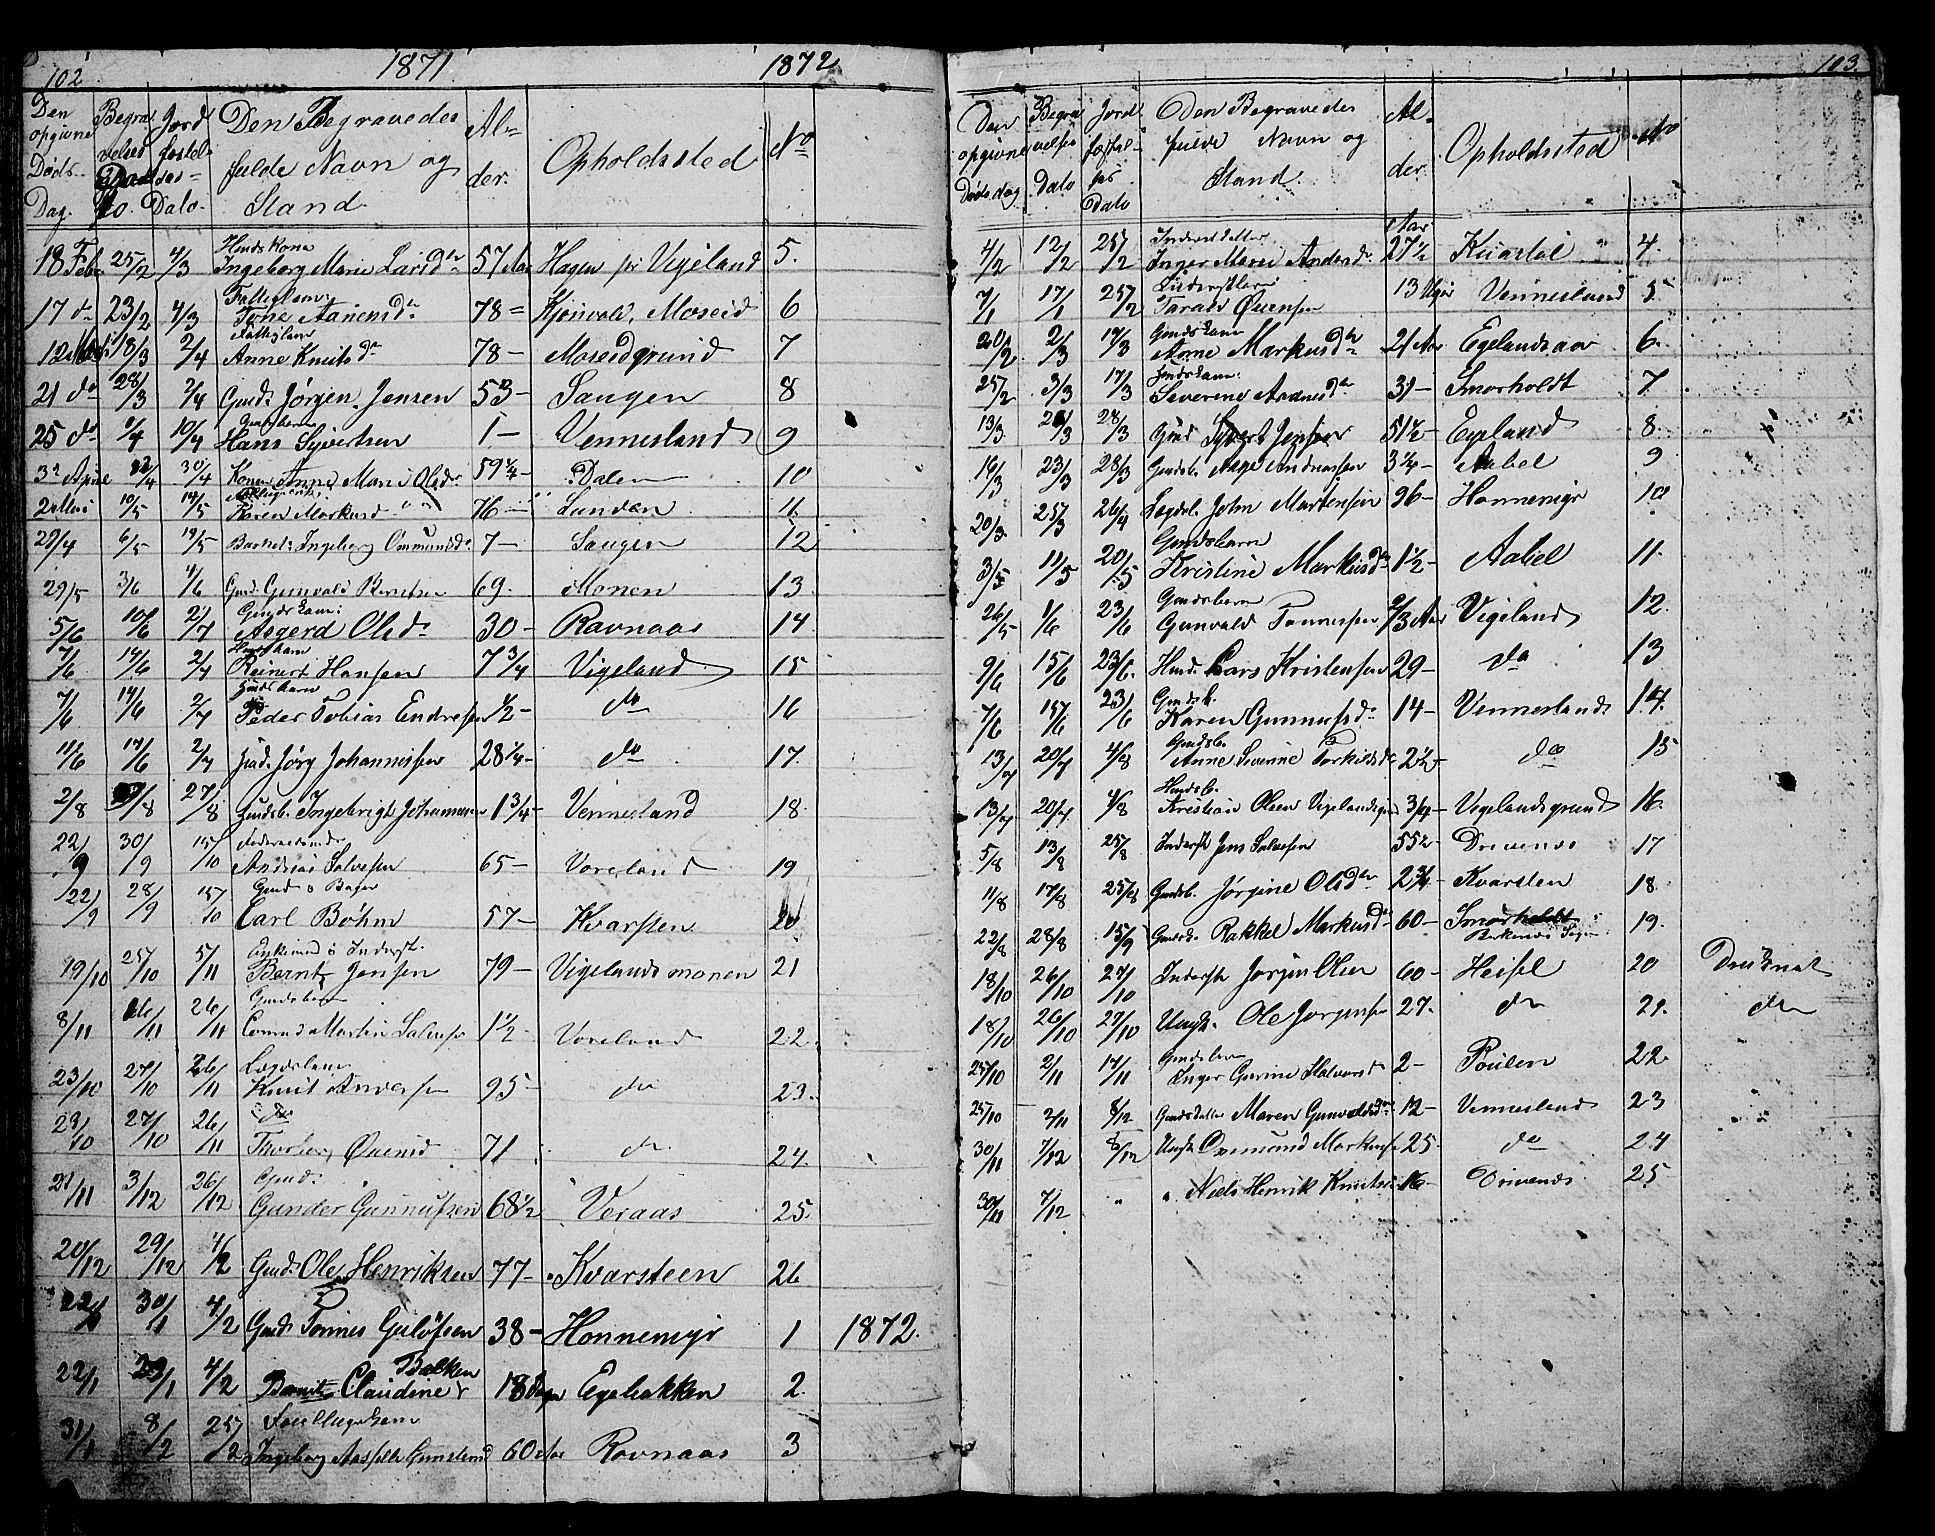 102
1871
1872
Den opgivne Døds Dag. | Begravelses Dato. | Jordfæstelses Dato. | Den Begravedes fulde Navn og Stand | Alder. | Opholdssted | No
18 Feb | 25/2 | 4/3 | Huuskone Ingeborg Marie Larsdr | 57 Aar | Hagen pr Vigeland | 5.
17 do | 23/2 | 4/3 | Tone Aanensdr | 78 | Moseid | 6
12 | 18/3 | 2/4 | Anne Knutsdr | 78 | Moseidgrund | 7
21 do | 28/3 | 2/4 | Gmd. Jørgen Jensen | 53 | Saugen | 8
25 do | 1/4 | 10/4 | Gmdsbarn Hans Syvertsen | 1 | Vennesland | 9
3 April | 22/4 | 30/4 | Kone Anne Marie Olsdr | 59 1/4 | Dalen | 10
2 Mai | 10/5 | 14/5 | Karen Markusd | 76 | Lunden | 11
29/4 | 6/5 | 14/5 | Barnet Ingeborg Ommundsdr | 7 | Saugen | 12
29/5 | 3/6 | 4/6 | Gmd. Gunvald Berntsen | 69. | Monen | 13.
5/6 | 10/6 | 2/7 | Asgerd Olsdr | 30 | Ravnaas | 14
7/6 | 14/6 | 2/7 | Reinert Hansen | 7 3/4 | Vigeland | 15
7/6 | 14/6 | 2/7 | Peder Tobias Endresen | 1/2 | do | 16
11/6 | 17/6 | 2/7 | Jørg Johannissen | 28 1/4 | do | 17.
2/8 | 9/8 | 27/8 | Ingebrigt Johannesen | 1 3/4 | Vennesland | 18.
22/9 | 30/9 | 15/10 | Føderaadsmd Andreas Salvesen | 65 | Voreland | 19
22/9 | 28/9 | 15/10 | Gmd o Bager Carl Bøhm | 57 | Kvarsten | 20
19/10 | 25/10 | 5/11 | Enkemd o Inderst. Bernt Jensen | 79 | Vigelandsmonen | 21
8/11 | 16/11 | 26/11 | Gmdsbarn Conrad Martin Salvesen | 1 1/2 | Voreland | 22.
23/10 | 27/10 | 26/11 | Lægdslem Knut Andersen | 95 | do | 23.
23/10 | 27/10 | 26/11 | do Thorborg Øvensd | 71 | do | 24.
21/11 | 3/12 | 26/12 | Gmd. Gunder Gunnufsen | 68 1/2 | Veraas | 25.
20/12 | 29/12 | 4/2 | Gmd. Ole Henriksen | 77 | Kvarsteen | 26
22/1 | 30/1 | 4/2 | Gmd. Tønnes Gulufsen | 38 | Honnemyr | 1 | 1872.
22/1 | 29/1 | 4/2 | Barnet Claudine Balken | 18 Dage | Egebakken | 2.
31/1 | 8/2 | 25/2 | Ingeborg | 60 Aar | Ravnaas | 3
103.
Den opgivne Dødsdag | Begravelses Dato | Jordfæstelses Dato | Den Begravedes fulde Navn og Stand. | Alder. | Opholdssted | No
4/2 | 12/2 | 25/2 | Inderstdatter Inger Marie Andersdr | Aar 27 1/2 | Kvastøl | 4.
7/1 | 17/1 | 25/2 | Tarald Øvensen | 13 Uger | Vennesland | 5
20/2 | 2/3 | 17/3 | Anne Markusdr | 21 Aar | Egelandsaar | 6.
25/2 | 3/3 | 17/3 | Severine Aadnesdr | 31 | Smørholdt | 7.
13/3 | 21/3 | 28/3 | Gmd Syvert Jensen | 51 1/2 | Egeland | 8.
16/3 | 23/3 | 28/3 | Gmdsb. Aage Andreassen | 3 1/4 | Aabel | 9
20/3 | 25/3 | 26/4 | Lægdsl. John Martensen | 96 | Honnemyr | 10
3/5 | 11/5 | 20/5 | Gmdsbarn Kristine Markusdr | 1 1/2 | Aabel | 11.
26/5 | 1/6 | 23/6 | Gmdsbarn Gunvald Tønnessen | 2/3 Aar | Vigeland | 12.
9/6 | 15/6 | 23/6. | Huusm. Lars Kristensen | 29 | do | 13
7/6 | 15/6 | 23/6 | Gmdsb. Karen Gunnufsdr | 14 | Vennesland | 14.
13/7 | 20/7 | 4/8 | Gmdsb. Anne Severine Torkildsdr | 2 1/2 | do | 15
13/7 | 20/7 | 4/8 | Huusb. Kristian Olsen Vigelandsgrund | 3/4 | Vigelandsgrund | 16.
5/8 | 13/8 | 25/8 | Inderst Jens Salvesen | 55 1/2 | Drivenes | 17
11/8 | 17/8 | 25/8 | Gmdsb. Jørgine Olsdr | 2 3/4 | Kvarsten | 18.
22/8 | 28/8 | 15/9 | Rakkel Markusdr | 60 | Smørholdt Birkenes Sogn | 19.
18/10 | 26/10 | 27/10 | Inderste Jørgen Olsen | 60 | Heisel | 20 | Druknet
18/10 | 26/10 | 27/10 | Ungk. Ole Jørgensen | 27. | do | 21. | do
25/10 | 2/11 | 17/11 | Inger Gurine Halvorsdr | 2 | Poulen | 22.
25/10 | 2/11 | 8/12 | Gmdsdatter Maren Gunvaldsdr | 12 | Vennesland | 23
30/11 | 7/12 | 8/12 | Ungk Ommund Markusen | 25. | do | 24
30/11 | 7/12 | " | " Niels Henrik Knutsen | 16 | Drivenes | 25